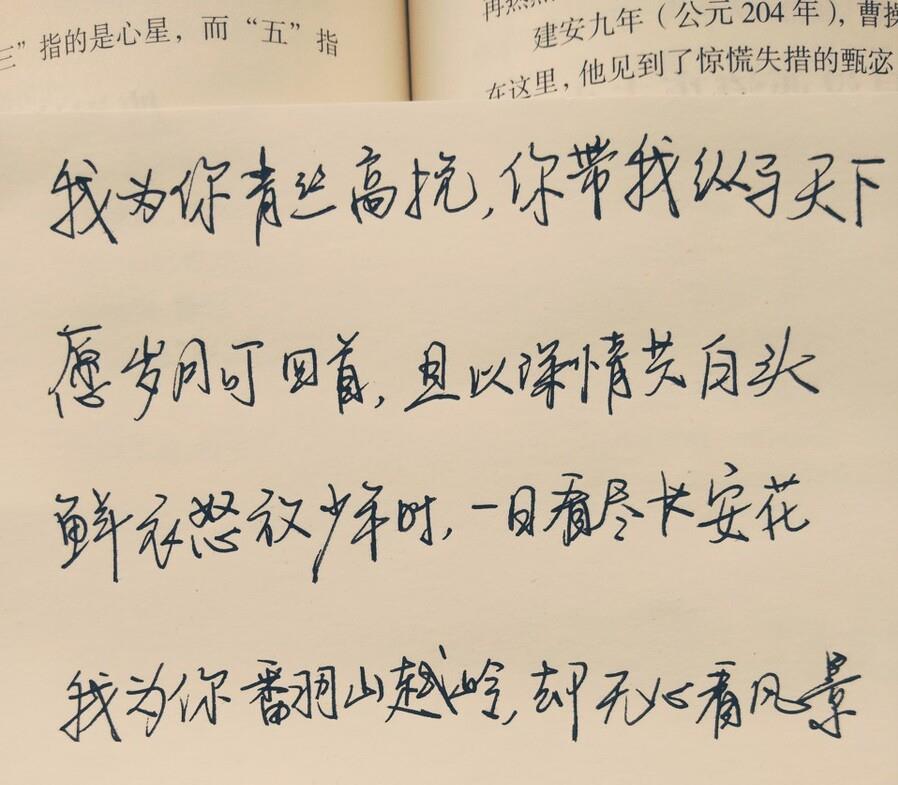 三”指的是心星，而“五”指
建安九年（公元204年），曹操
在这里，他见到了惊慌失措的甄宓
我为你青丝高挽，你带我纵马天下
愿岁月可回首，且以深情共白头
鲜衣怒放少年时，一日看尽长安花
我为你翻山越岭，却无心看风景